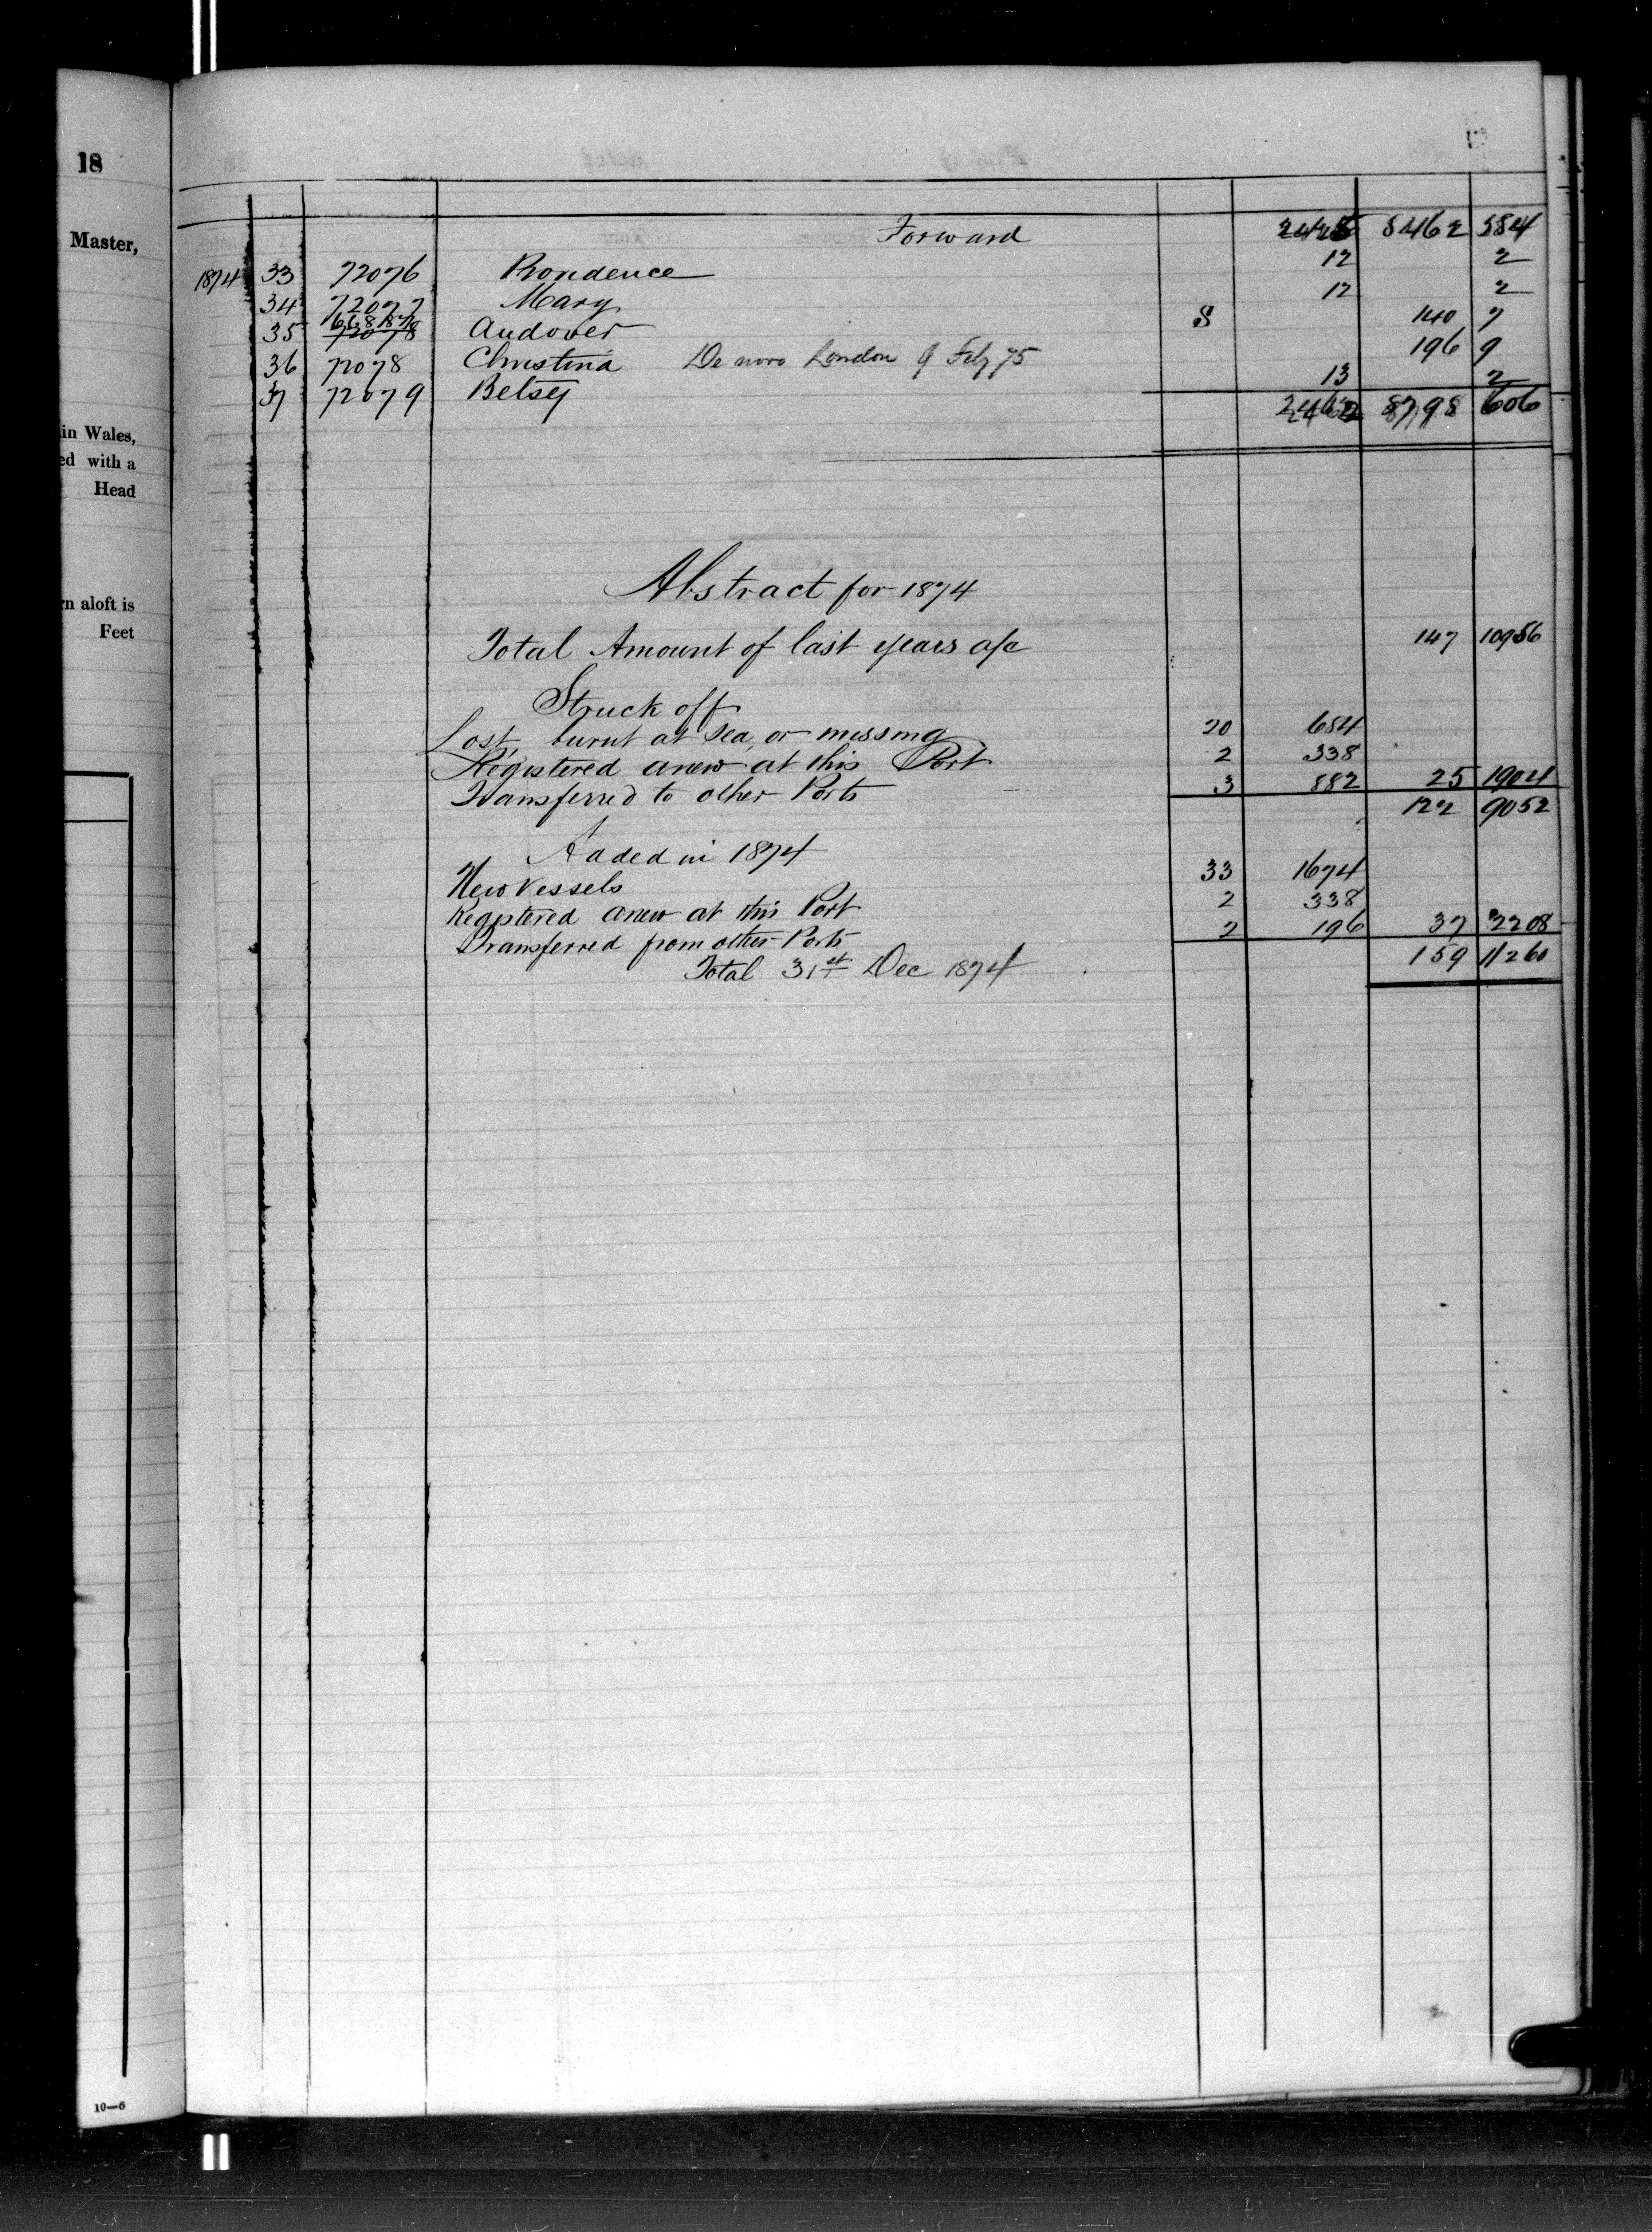 18
Master,
in Wales,
ed with a
Head
rn aloft is
Feet
10—6
Forward 2425 8462 584
1874 33 72076 Providence 12 2
34 72077 Mary 12 2
35 72078 Andover S 140 7
36 72078 Christina De novo London 9 Feby 75 196 9
37 72079 Betsey 13 2
2462 8798 606
Abstract for 1874
Total Amount of last years a/c 147 10956
Struck off
Lost, burnt at sea, or missing 20 684
Registered anew at this Port 2 338
Transferred to other Ports 3 882 25 1904
122 9052
Added in 1874
New Vessels 33 1674
Registered anew at this Port 2 338
Transferred from other Ports 2 196 37 2208
Total 31st Dec 1874 159 11260